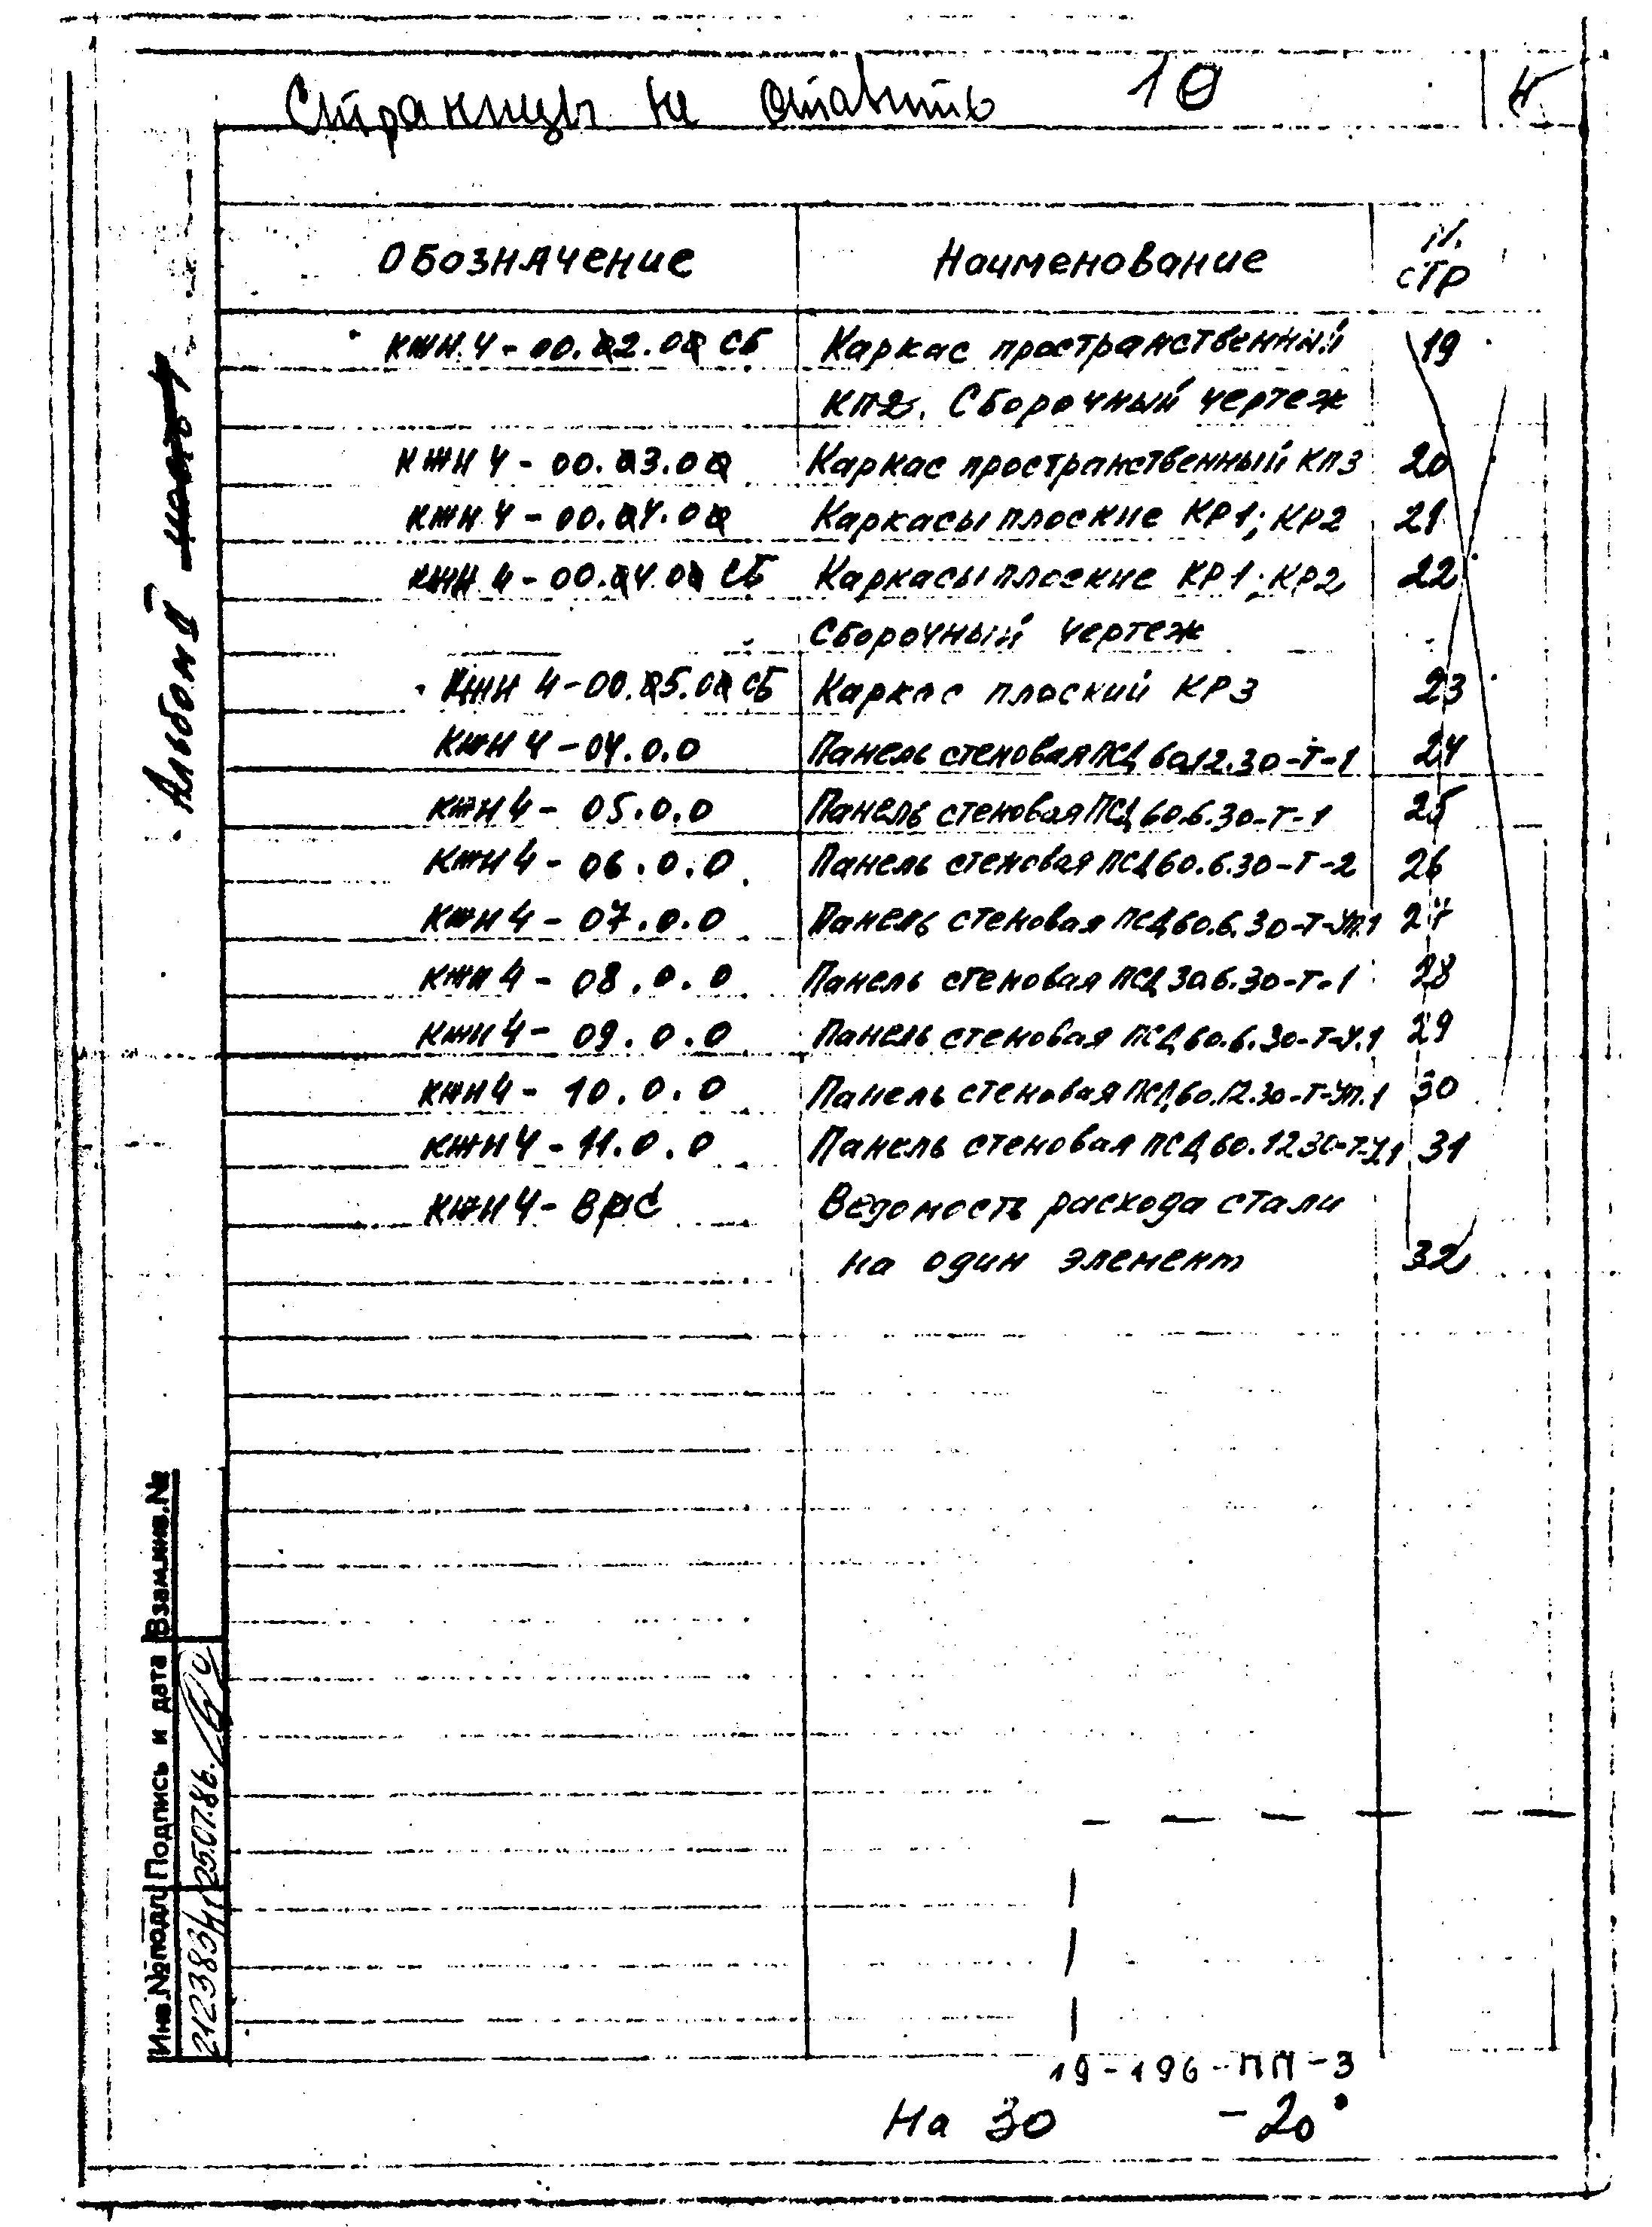 Страницы не ставить 10 4
Обозначение Наименование N. стр
КЖН 4-00.02.00 СБ Каркас пространственный 19
КП2. Сборочный чертеж
КЖН 4-00.03.00 Каркас пространственный КП3 20
КЖН 4-00.04.00 Каркасы плоские КР1; КР2 21
КЖН 4-00.04.00 СБ Каркасы плоские КР1; КР2 22
Сборочный чертеж
КЖН 4-00.05.00 СБ Каркас плоский КР3 23
КЖН 4-04.0.0 Панель стеновая ПСД 60.12.30-Т-1 24
КЖН 4-05.0.0 Панель стеновая ПСД 60.6.30-Т-1 25
КЖН 4-06.0.0 Панель стеновая ПСД 60.6.30-Т-2 26
КЖН 4-07.0.0 Панель стеновая ПСД 60.6.30-Т-УП.1 27
КЖН 4-08.0.0 Панель стеновая ПСД 30.6.30-Т-1 28
КЖН 4-09.0.0 Панель стеновая ПСД 60.6.30-Т-У.1 29
КЖН 4-10.0.0 Панель стеновая ПСД 60.12.30-Т-УП.1 30
КЖН 4-11.0.0 Панель стеновая ПСД 60.12.30-Т-У1 31
КЖН 4-ВРС Ведомость расхода стали
на один элемент 32
Альбом II
Взам.инв.№
Подпись и дата
25.07.86.
Инв.№подл
212383/41
19-196-ПП-3
На 30 -20°